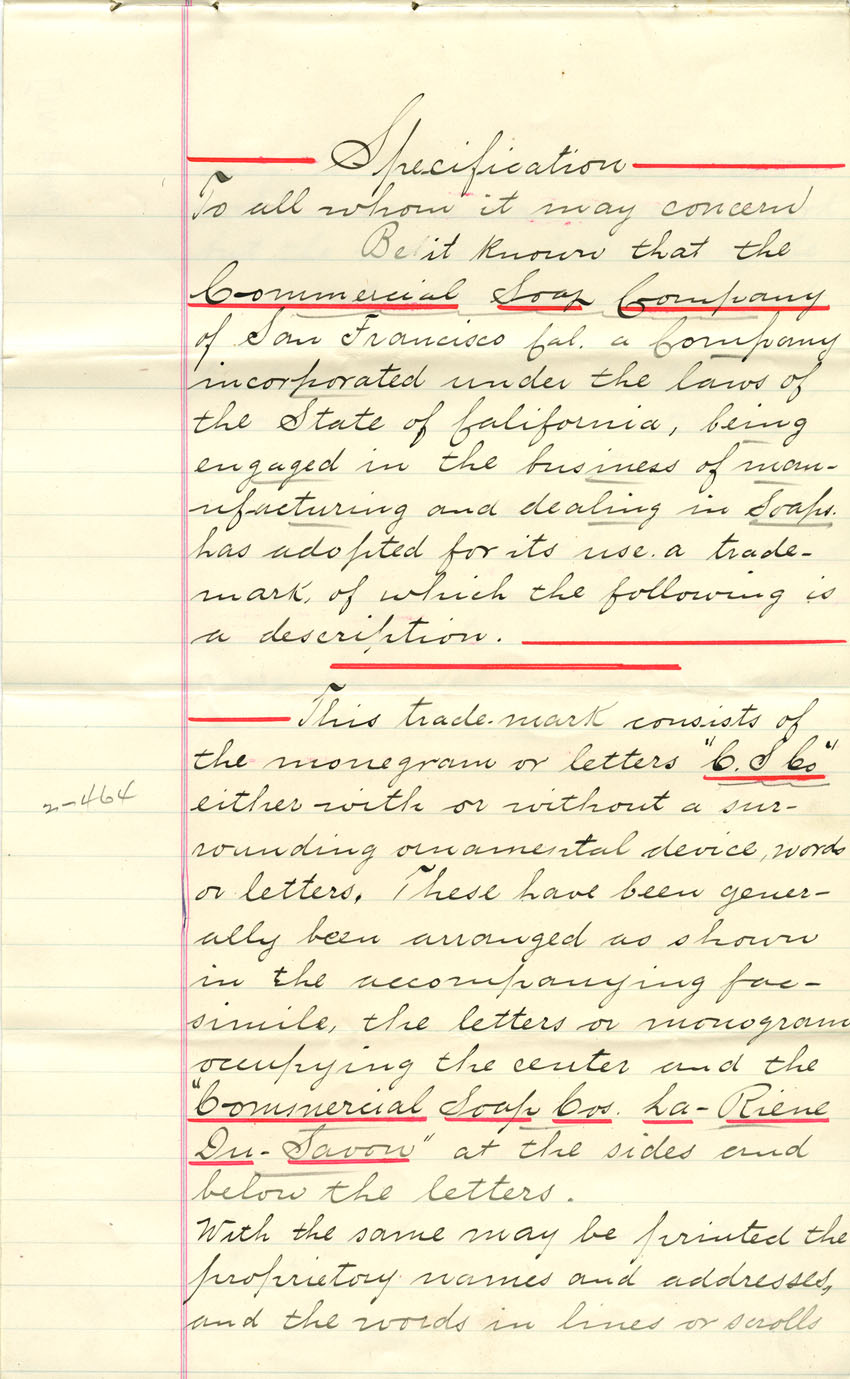 Specification
To all whom it may concern
Be it known that the
Commercial Soap Company
of San Francisco Cal. a Company
incorporated under the laws of
the State of California, being
engaged in the business of man-
ufacturing and dealing in Soaps.
has adopted for its use. a trade-
mark, of which the following is
a description.
This trade-mark consists of
the monegram or letters "C. S Co"
either with or without a sur-
rounding ornamental device, words
or letters. These have been gener-
ally been arranged as shown
in the accompanying fac-
simile, the letters or monogram
occupying the center and the
"Commercial Soap Cos. La-Riene
Du-Savon" at the sides and
below the letters.
With the same may be printed the
proprietory names and addresses,
and the words in lines or scrolls
2-464